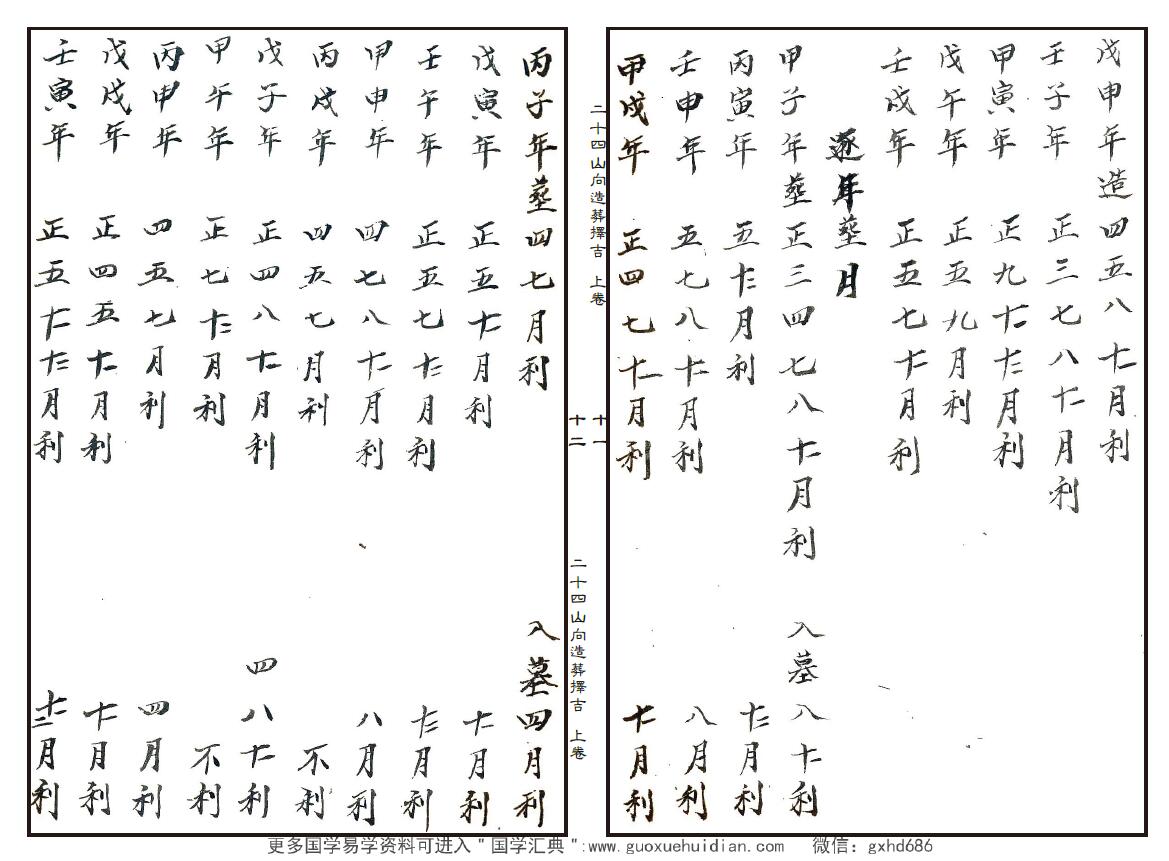 戊申年造四五八十一月利
壬子年 正三七八十一月利
甲寅年 正九十一十二月利
戊午年 正五九月利
壬戌年 正五七十一月利
逐年葬月
甲子年葬正三四七八十一月利 入墓八十一利
丙寅年 五十二月利 十二月利
壬申年 五七八十一月利 八月利
甲戌年 正四七十一月利 十一月利
二十四山向造葬擇吉 上卷 十一
丙子年葬四七月利 入墓四月利
戊寅年 正五十一月利 十一月利
壬午年 正五七十二月利 十二月利
甲申年 四七八十一月利 八月利
丙戌年 四五七月利 不利
戊子年 正四八十一月利 四八十一利
甲午年 正七十二月利 不利
丙申年 四五七月利 四月利
戊戌年 正四五十一月利 十一月利
壬寅年 正五十一十二月利 十一二月利
十二 二十四山向造葬擇吉 上卷
更多国学易学资料可进入＂国学汇典＂:www.guoxuehuidian.com 微信：gxhd686